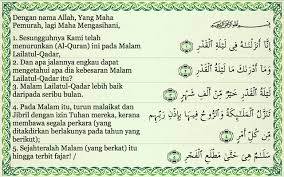 Dengan nama Allah, Yang Maha
Pemurah, lagi Maha Mengasihani,
1. Sesungguhnya Kami telah
menurunkan (Al-Quran) ini pada Malam
Lailatul-Qadar,
إِنَّا أَنزَلْنَاهُ فِي لَيْلَةِ الْقَدْرِ
2. Dan apa jalannya engkau dapat
mengetahui apa dia kebesaran Malam
Lailatul-Qadar itu?
وَمَا أَدْرَاكَ مَا لَيْلَةُ الْقَدْرِ
3. Malam Lailatul-Qadar lebih baik
daripada seribu bulan.
لَيْلَةُ الْقَدْرِ خَيْرٌ مِّنْ أَلْفِ شَهْرٍ
4. Pada Malam itu, turun malaikat dan
Jibril dengan izin Tuhan mereka, kerana
membawa segala perkara (yang
ditakdirkan berlakunya pada tahun yang
berikut);
تَنَزَّلُ الْمَلَائِكَةُ وَالرُّوحُ فِيهَا بِإِذْنِ رَبِّهِم
مِّن كُلِّ أَمْرٍ
5. Sejahteralah Malam (yang berkat) itu
hingga terbit fajar! /
سَلَامٌ هِيَ حَتَّىٰ مَطْلَعِ الْفَجْرِ